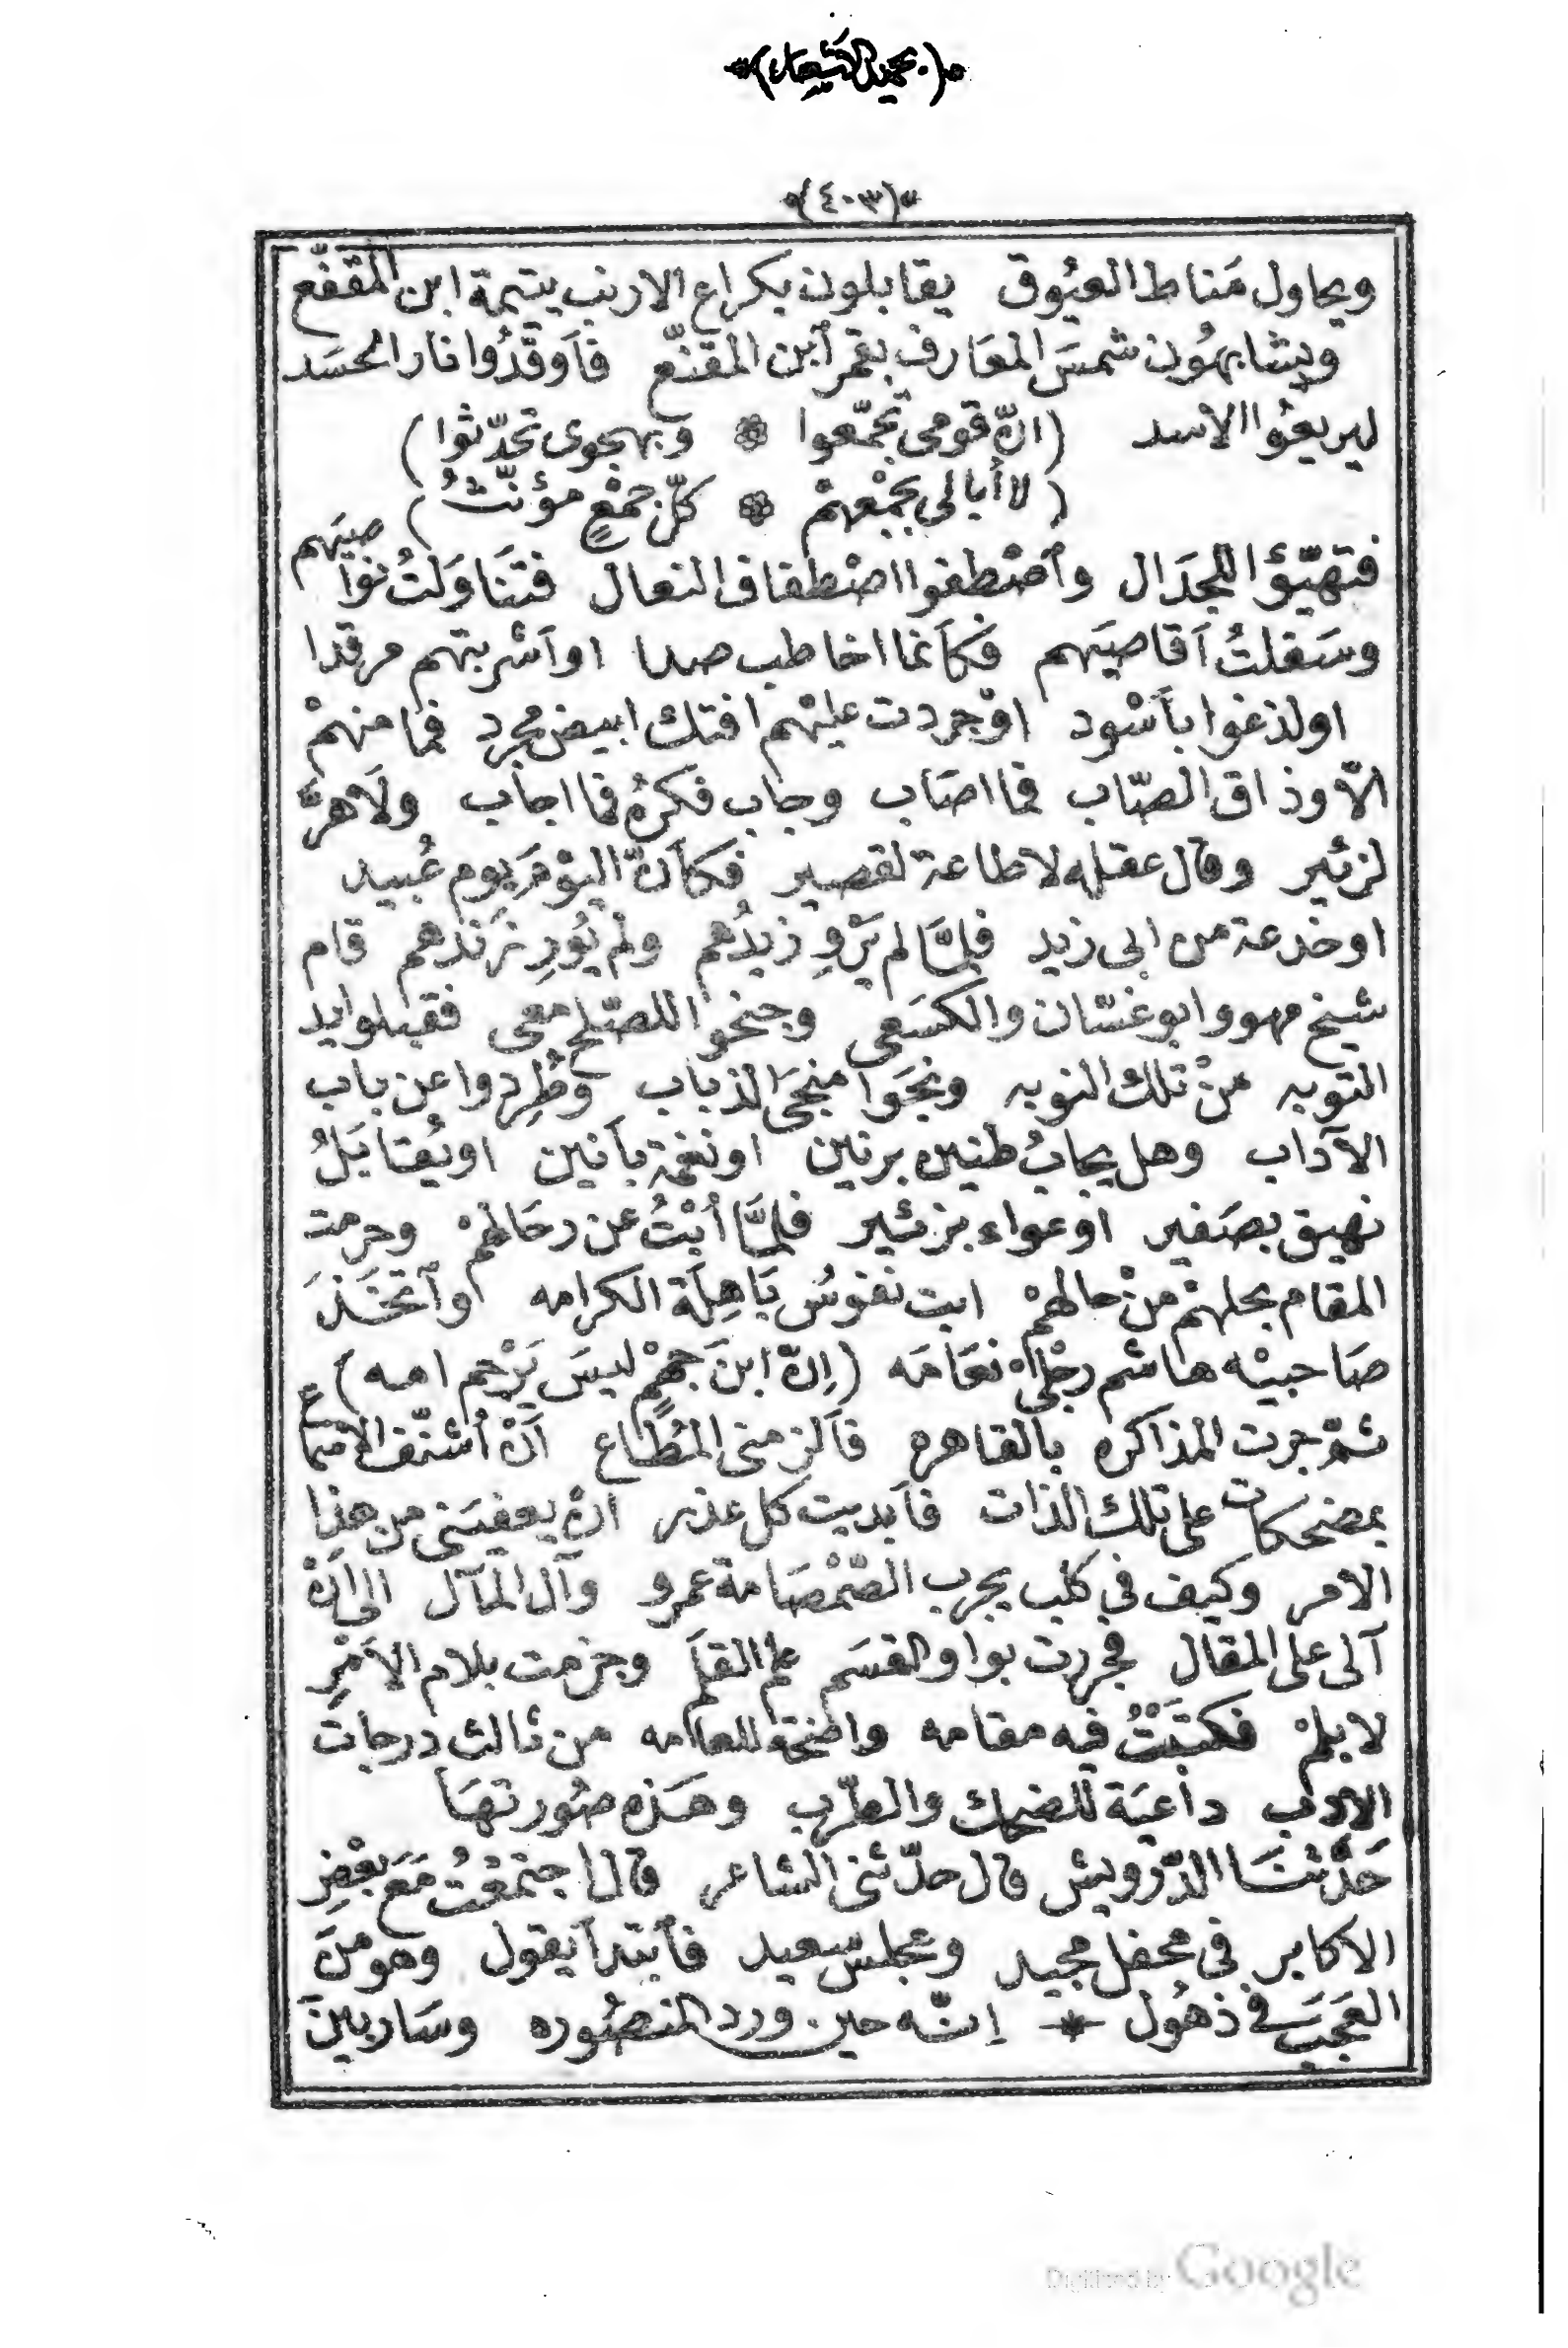 (٤٠٣)
ويحاول مَناط العيُوق يقابلون بكراع الارنب يتيمة ابن المقفّع
ويشابهُون شمسَ المعَارف بقمر أبن المقنّع فاَوقدُوا نار الحسَد
ليريعُوا الاسد (انّ قومى تجمّعوا * وبهجوى تحدّثوا)
(لا أبالى بجمْعهمْ * كلّ جمْعٍ مؤنّثُ)
فتهيّؤا للجدَال وأصْطفوا اصْطفاف النعال فتنَاوَلتُ نواصيَهم
وسَفلتُ آقاصيَهم فكاَنما اخاطب صدا او اَشربتهم مرقدا
او لذغوا باَسْود اوْجردت عليْهم افتك ابيض مجرد فما منهمْ
الاّ وذاق الصّاب فما اصَاب وجاب فكرُه فما اجاب ولاَهرَّ
لزئير وقال عقله لا طاعة لقصير فكاَنّ اليوْمَ يوم عُبيد
او خدعة من ابى زيد فلمَّا لم يَرْوِ زيدُهم ولمْ يُورِ زَندهم قام
شيخ مهو وابو غسّان والكسَعى وجنحوا للصّلح معى فقبلوا يد
التوبه منْ تلك النوبه ونجَوا منجَى الذباب وطُردوا عن باب
الآداب وهل يجابُ طنين برنين او نغمة بأنين او يُقابَلُ
نهيق بصَفير او عواء بزئير فلمَّا أبْتُ عن رحَالهمْ وحرمت
المقام بحلهمْ منْ حالهمْ ابت نفوسُ بَاهِلَة الكرامه وأتخَذَ
صَاحبيْه هاشم رجْلىْ نعَامَه (اِنّ ابنَ جهْمٍ ليسَ يَرْحم امه)
ثمّ جرت المذاكره بالقاهره فاَلزمنى المُطَاع اَنْ أشنّف الاسماع
بمضحكات على تلك الذات فاَبديت كل عذر ان يعفيَنى من هذا
الامر وكيف فى كلب يجرب الصّمْصَامة عمرو وآل المآل الى اَنْ
آلى على المقال فجررت بواو القسَم علم القلَم وجزمت بلام الاَمْرِ
لا بلمْ فكتبَتْ فيه مقامه واضحة للعامه من ثالث درجات
الادب داعيَة للضحك والطرَب وهَذه صُورتهَا
حَدّثنَا الدّرْويش قال حدّثنى الشاعر قال اجتمَعْتُ مَعَ بعْضِ
الاكابر فى محفل مجيد ومجلس سعيد فاَبتدأ يقول وهو منَ
العَجبَ فى ذهُول * اِنّه حين ورد المنصُوره وسَار بينَ
Digitized by Google